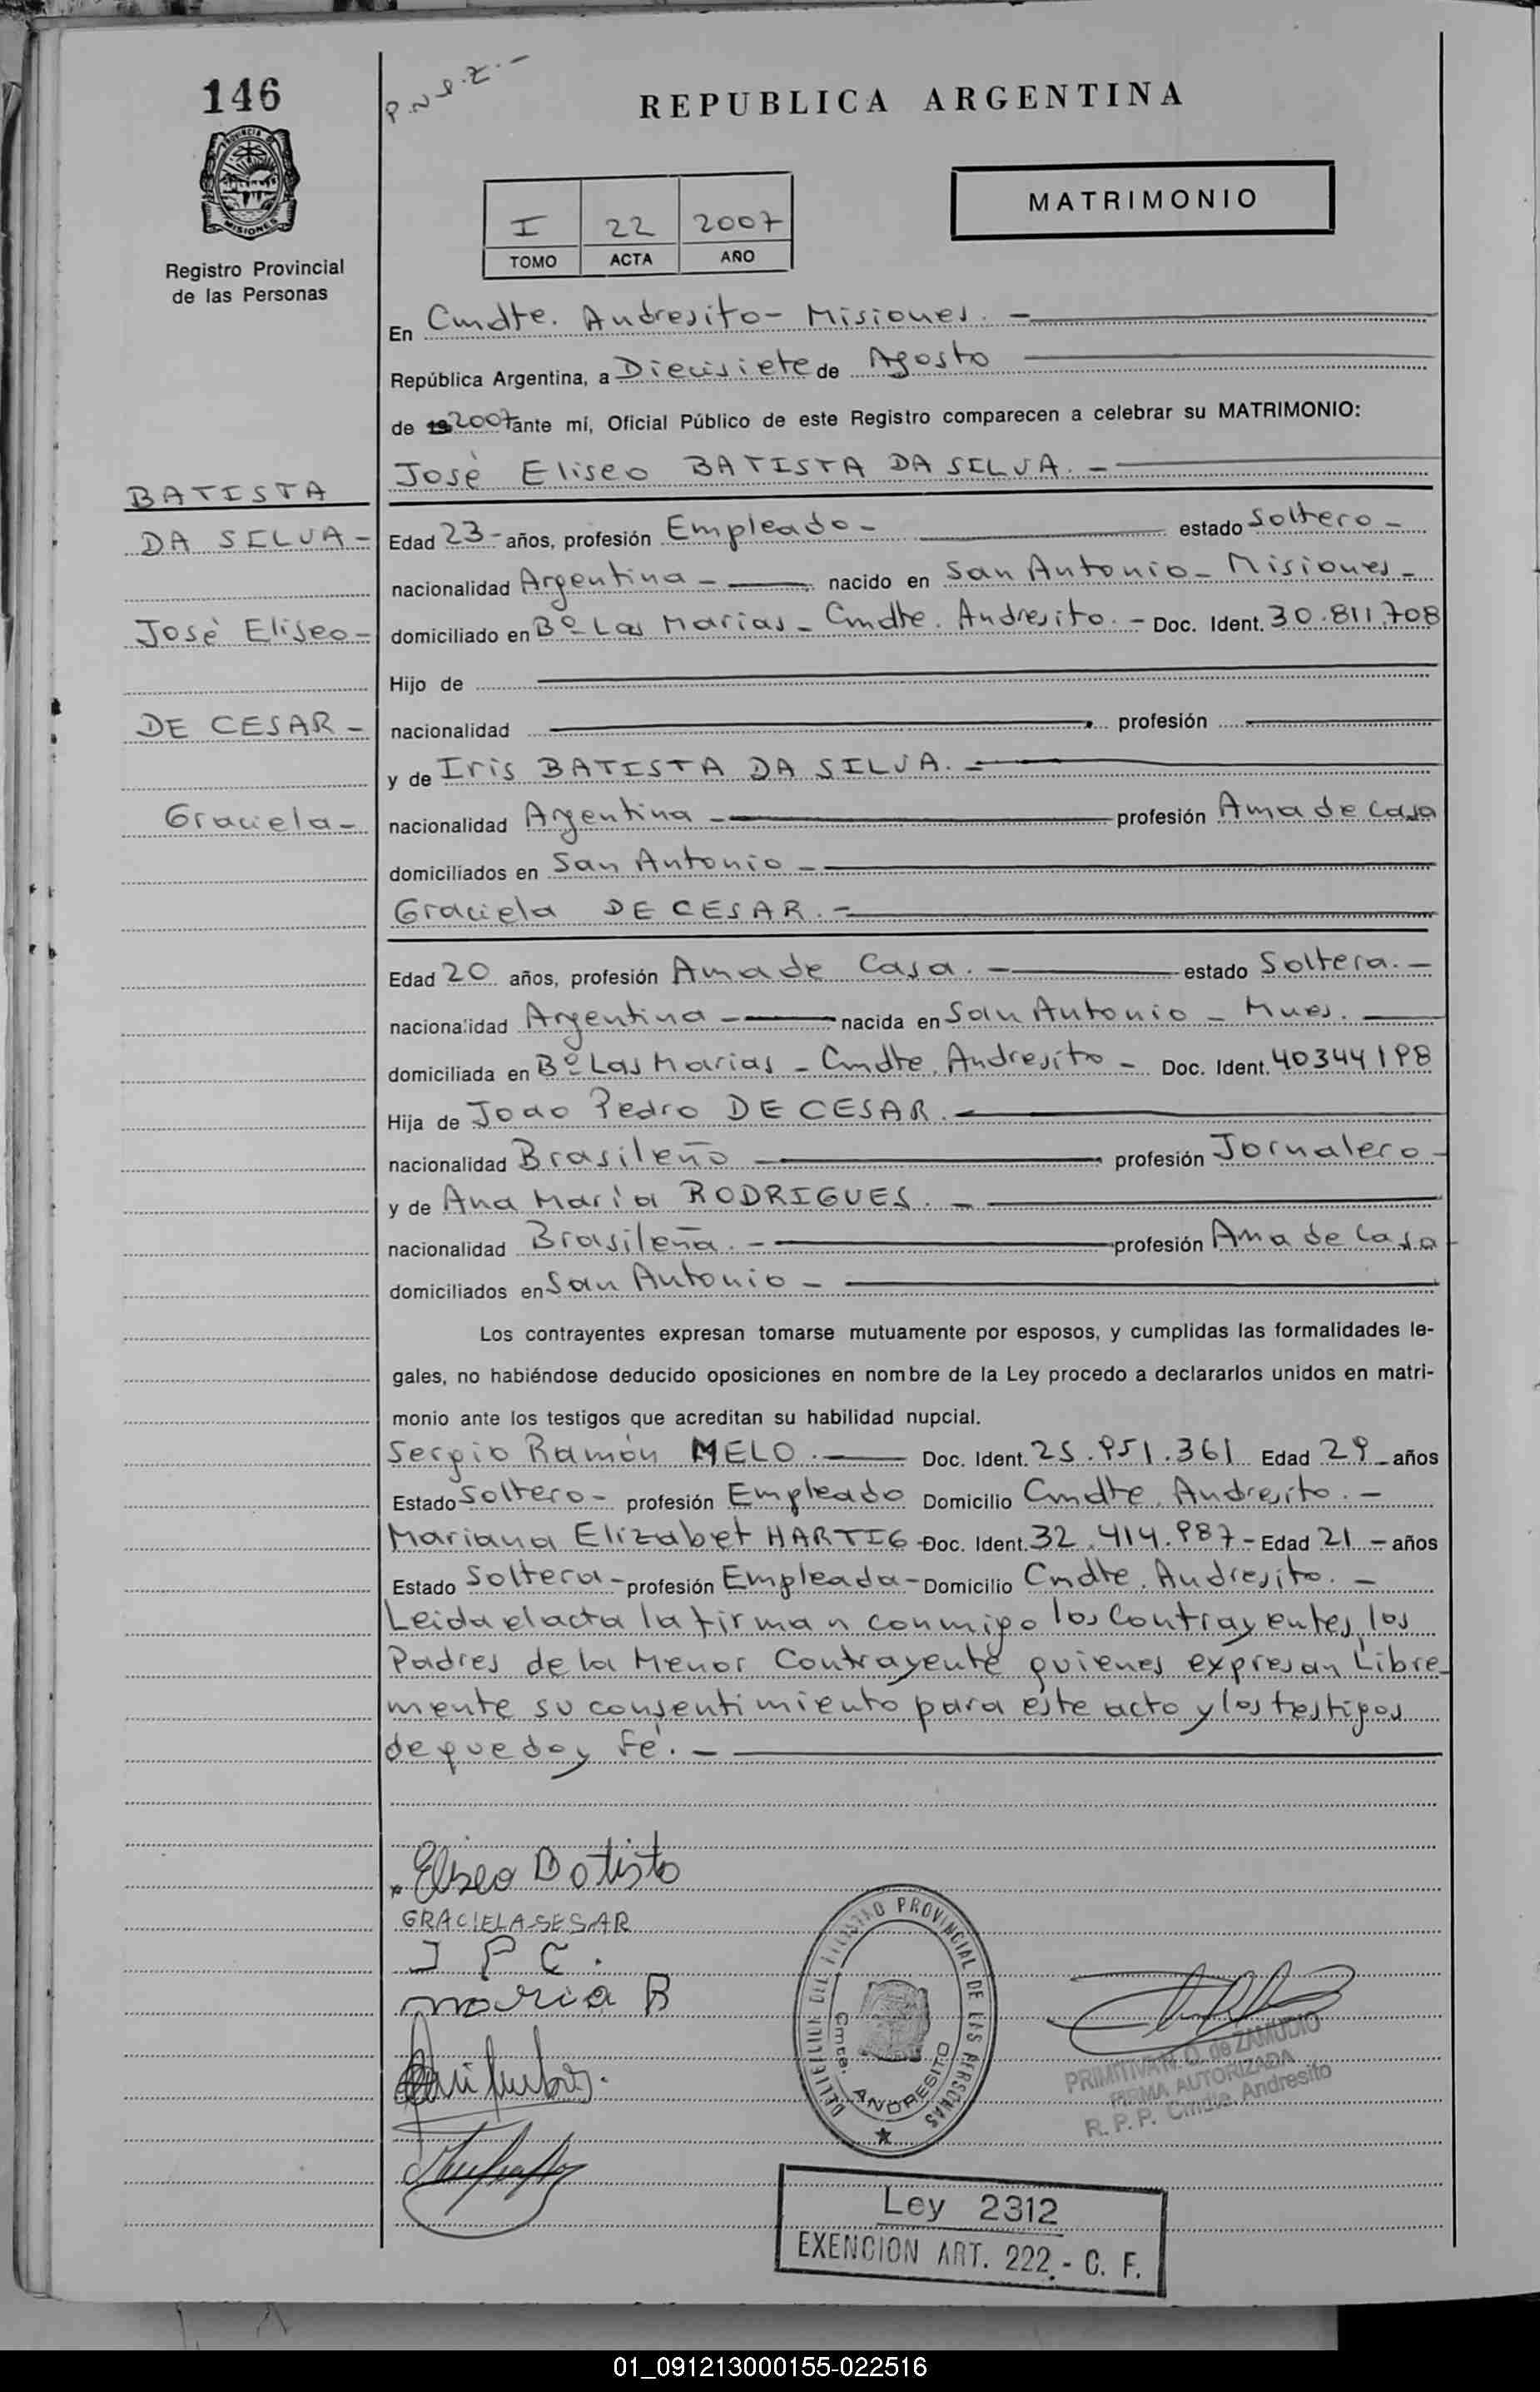 146
P.N.S.Z.-
REPUBLICA ARGENTINA
PROVINCIA DE
MISIONES
MATRIMONIO
I 22 2007
TOMO ACTA AÑO
Registro Provincial
de las Personas
En Cmdte. Andresito - Misiones. -
República Argentina, a Diecisiete de Agosto
de 19 2007 ante mí, Oficial Público de este Registro comparecen a celebrar su MATRIMONIO:
José Eliseo BATISTA DA SILVA. -
BATISTA
DA SILVA -
Edad 23 - años, profesión Empleado - estado Soltero -
nacionalidad Argentina - nacido en San Antonio - Misiones -
José Eliseo -
domiciliado en Bº Las Marias - Cmdte. Andresito. - Doc. Ident. 30.811.708
Hijo de
DE CESAR -
nacionalidad profesión
y de Iris BATISTA DA SILVA. -
Graciela -
nacionalidad Argentina - profesión Ama de Casa
domiciliados en San Antonio -
Graciela DE CESAR. -
Edad 20 años, profesión Ama de Casa. - estado Soltera. -
nacionalidad Argentina - nacida en San Antonio - Mnes.
domiciliada en Bº Las Marias - Cmdte. Andresito - Doc. Ident. 40344198
Hija de Joao Pedro DE CESAR. -
nacionalidad Brasileño - profesión Jornalero -
y de Ana María RODRIGUES. -
nacionalidad Brasileña. - profesión Ama de Casa
domiciliados en San Antonio -
Los contrayentes expresan tomarse mutuamente por esposos, y cumplidas las formalidades le-
gales, no habiéndose deducido oposiciones en nombre de la Ley procedo a declararlos unidos en matri-
monio ante los testigos que acreditan su habilidad nupcial.
Sergio Ramón MELO. - Doc. Ident. 25.951.361 Edad 29 - años
Estado Soltero - profesión Empleado Domicilio Cmdte. Andresito. -
Mariana Elizabet HARTIG - Doc. Ident. 32.414.987 - Edad 21 - años
Estado Soltera - profesión Empleada - Domicilio Cmdte. Andresito. -
Leida el acta la firman conmigo los Contrayentes, los
Padres de la Menor Contrayente quienes expresan Libre-
mente su consentimiento para éste acto y los testigos
de que doy Fé. -
Eliseo Batista
GRACIELA SESAR
J P C.
maria R
PROVINCIAL DE LAS PERSONAS
Cmte. ANDRESITO
PRIMITIVA N. D. de ZAMUDIO
FIRMA AUTORIZADA
R. P. P. Cmdte. Andresito
Ley 2312
EXENCION ART. 222.- C. F.
01_091213000155-022516